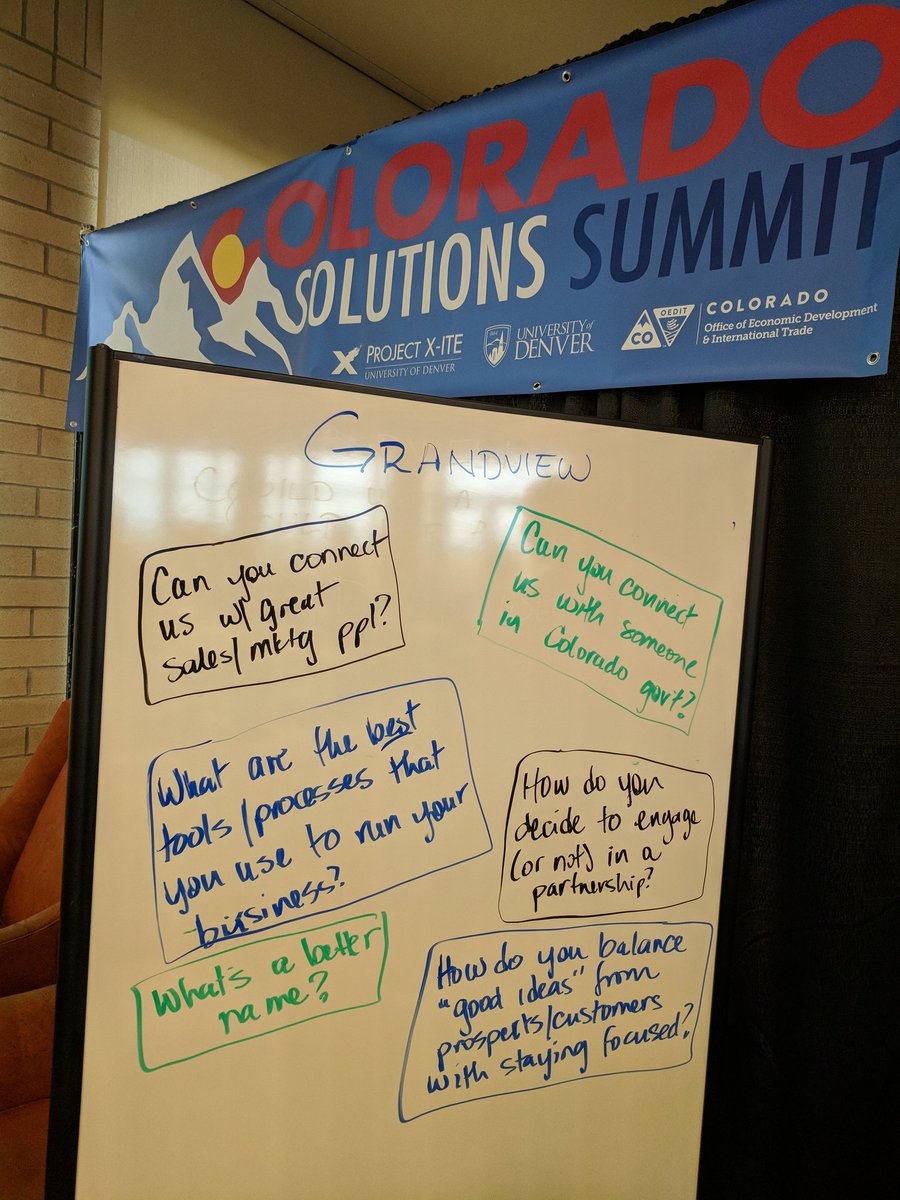 COLORADO
SOLUTIONS SUMMIT
PROJECT X-ITE
UNIVERSITY OF DENVER
UNIVERSITY of
DENVER
CO
OEDIT
COLORADO
Office of Economic Development
& International Trade
GRANDVIEW
Can you connect
us w/ great
sales/mktg ppl?
Can you connect
us with someone
in Colorado govt?
What are the best
tools/processes that
you use to run your
business?
How do you
decide to engage
(or not) in a
partnership?
What's a better
name?
How do you balance
"good ideas" from
prospects/customers
with staying focused?